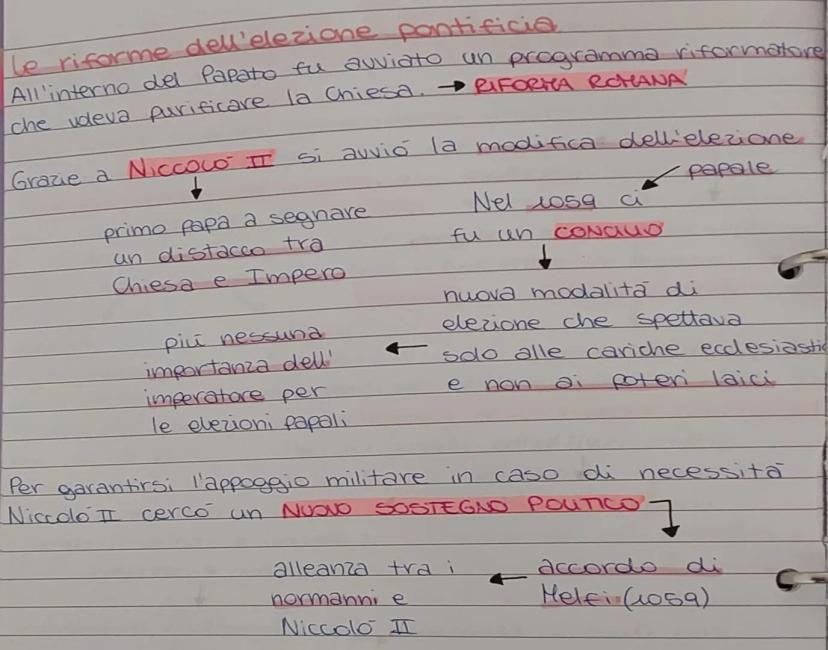 Le riforme dell'elezione pontificia
All'interno del Papato fu avviato un programma riformatore
che voleva purificare la Chiesa. → RIFORMA ROMANA
Grazie a NICCOLÒ II si avviò la modifica dell'elezione
papale
primo papa a segnare
un distacco tra
Chiesa e Impero
Nel 1059 ci
fu un CONCILIO
nuova modalità di
elezione che spettava
solo alle cariche ecclesiasti
e non ai poteri laici
più nessuna
importanza dell'
imperatore per
le elezioni papali
Per garantirsi l'appoggio militare in caso di necessità
Niccolò II cercò un NUOVO SOSTEGNO POLITICO
accordo di
Melfi (1059)
alleanza tra i
normanni e
Niccolò II